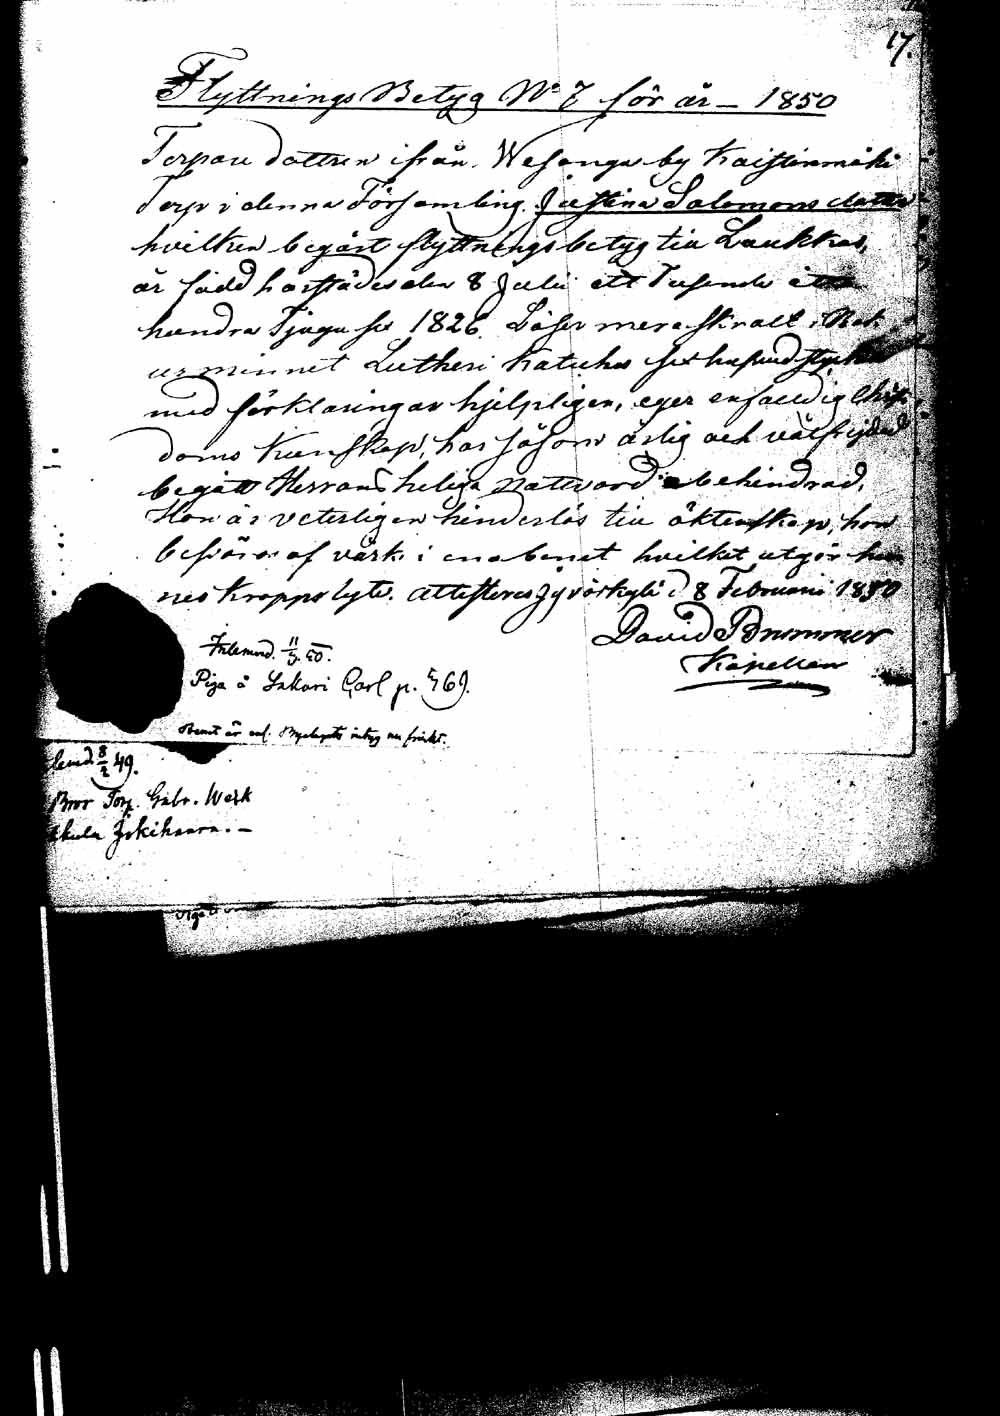 17.
Flyttnings Betyg No 7 för år – 1850
Torpare dottren ifrån Wesanga by Kaistinmäki
Torp i denna Församling Justina Salomons dotter
hvilken begärt flyttningsbetyg till Laukkas,
är född härstädes den 8 Julii ett Tusende åtta
hundra Tjugu sex 1826. Läser mera skralt i Bok
ur minnet Lutheri Katuches sex hufvudstycken
med förklaringar hjelpligen, eger enfaldig Chris
doms Kunskap, har såsom ärlig och välfrejdad
begått Herrans heliga nattvard obehindrad,
Hon är veterligen hinderlös till äktenskap, hon
besväras af värk i ena benet hvilket utgör hen
nes kroppslyte. Attesteras Jyväskylä d 8 Februarii 1850
David Brummer
Kapellan
Inlemnd. 11/3 50.
Piga å Sakari Carl p. 569.
Benet är enl. intyg nu friskt.
lemd 8/2 49.
Bror Torp. Gabr. Werk